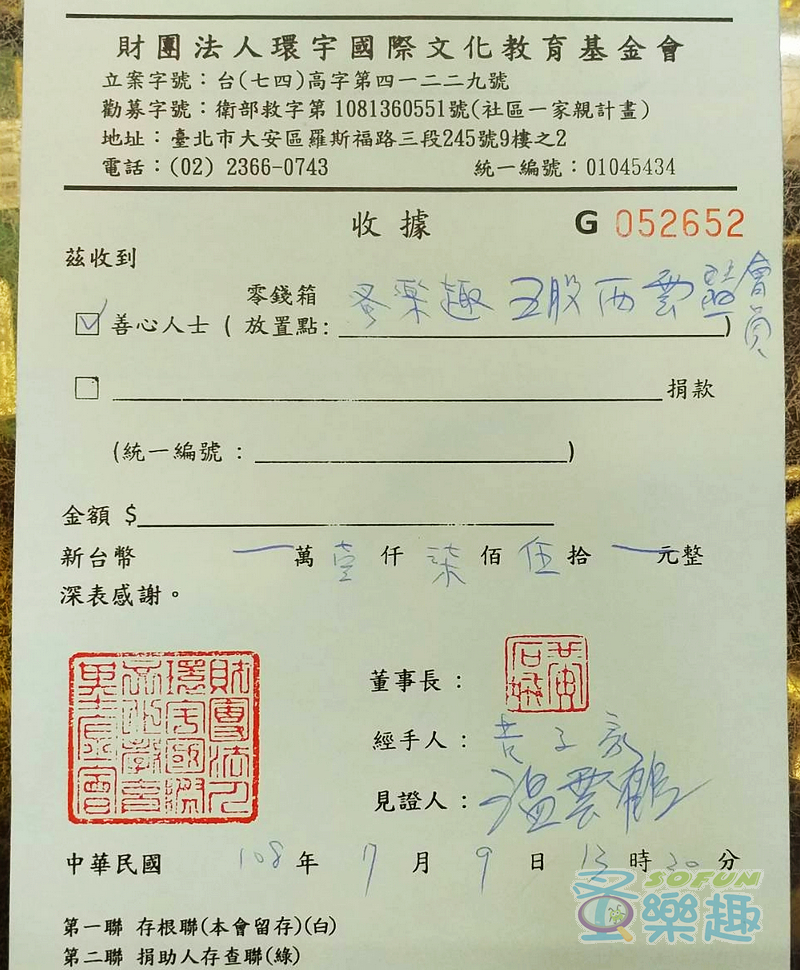 財團法人環宇國際文化教育基金會
立案字號：台(七四)高字第四一二二九號
勸募字號：衛部救字第1081360551號(社區一家親計畫)
地址：臺北市大安區羅斯福路三段245號9樓之2
電話：(02) 2366-0743 統一編號：01045434
收據 G 052652
茲收到
☑善心人士(零錢箱放置點：蚤樂趣 五股西雲 會員)
☐ 捐款
(統一編號：)
金額 $
新台幣 一萬壹仟柒佰伍拾一元整
深表感謝。
財團法人環宇國際文化教育基金會
董事長：
經手人：
見證人：溫雲鶴
中華民國 108年7月9日13時30分
SOFUN
蚤樂趣
第一聯 存根聯(本會留存)(白)
第二聯 捐助人存查聯(綠)